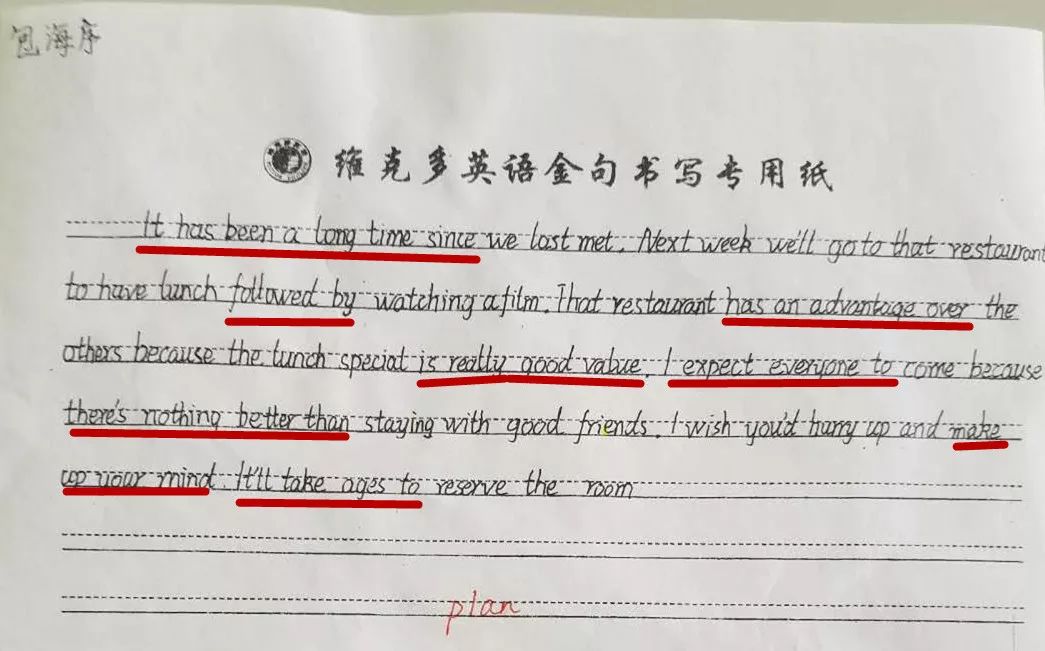 包海序
维克多英语金句书写专用纸
It has been a long time since we last met. Next week we'll go to that restaurant
to have lunch followed by watching a film. That restaurant has an advantage over the
others because the lunch special is really good value. I expect everyone to come because
there's nothing better than staying with good friends. I wish you'd hurry up and make
up your mind. It'll take ages to reserve the room
plan